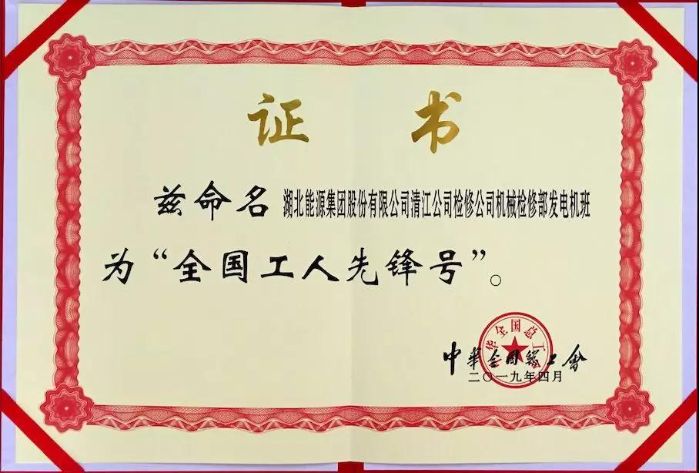 证书
兹命名 湖北能源集团股份有限公司清江公司检修公司机械检修部发电机班
为“全国工人先锋号”。
中华全国总工会
中華全國總工會
二〇一九年四月